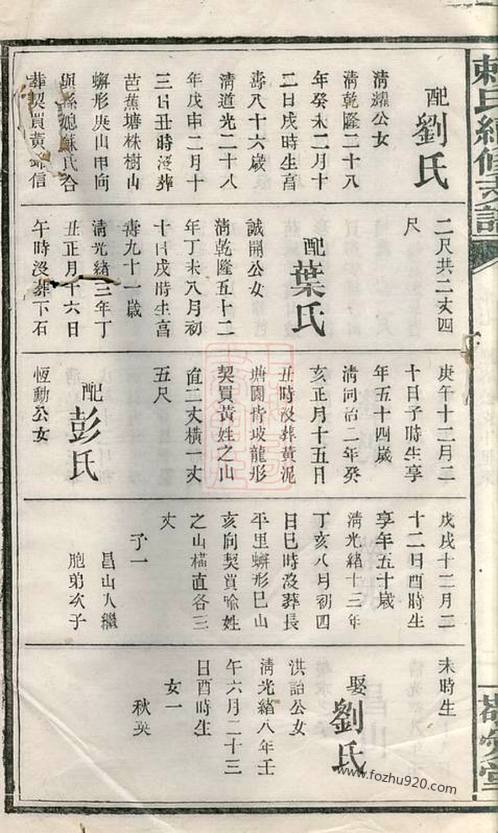 氏續修支譜
配劉氏
清耀公女
清乾隆二十八
年癸未二月十
二日戌時生享
壽八十六歲
清道光二十八
年戊申二月十
三日丑時沒葬
芭蕉塘株樹山
蠏形庚山甲向
與孫媳蘇氏合
葬契買黃信
二尺共二丈四
尺
配葉氏
誠開公女
清乾隆五十二
年丁未八月初
十日戌時生享
壽九十一歲
清光緒三年丁
丑正月十六日
午時沒葬下石
庚午十二月二
十日子時生享
年五十四歲
清同治二年癸
亥正月十五日
丑時沒葬黃泥
塘園背坡龍形
契買黃姓之山
直二丈橫一丈
五尺
配彭氏
恆動公女
戊戌十二月二
十二日酉時生
享年五十歲
清光緒十三年
丁亥八月初四
日巳時沒葬長
平里蠏形巳山
亥向契買喻姓
之山橫直各三
丈
子一
昌山入繼
胞弟次子
未時生
娶劉氏
洪詒公女
清光緒八年壬
午六月二十三
日酉時生
女一
秋英
www.fozhu920.com